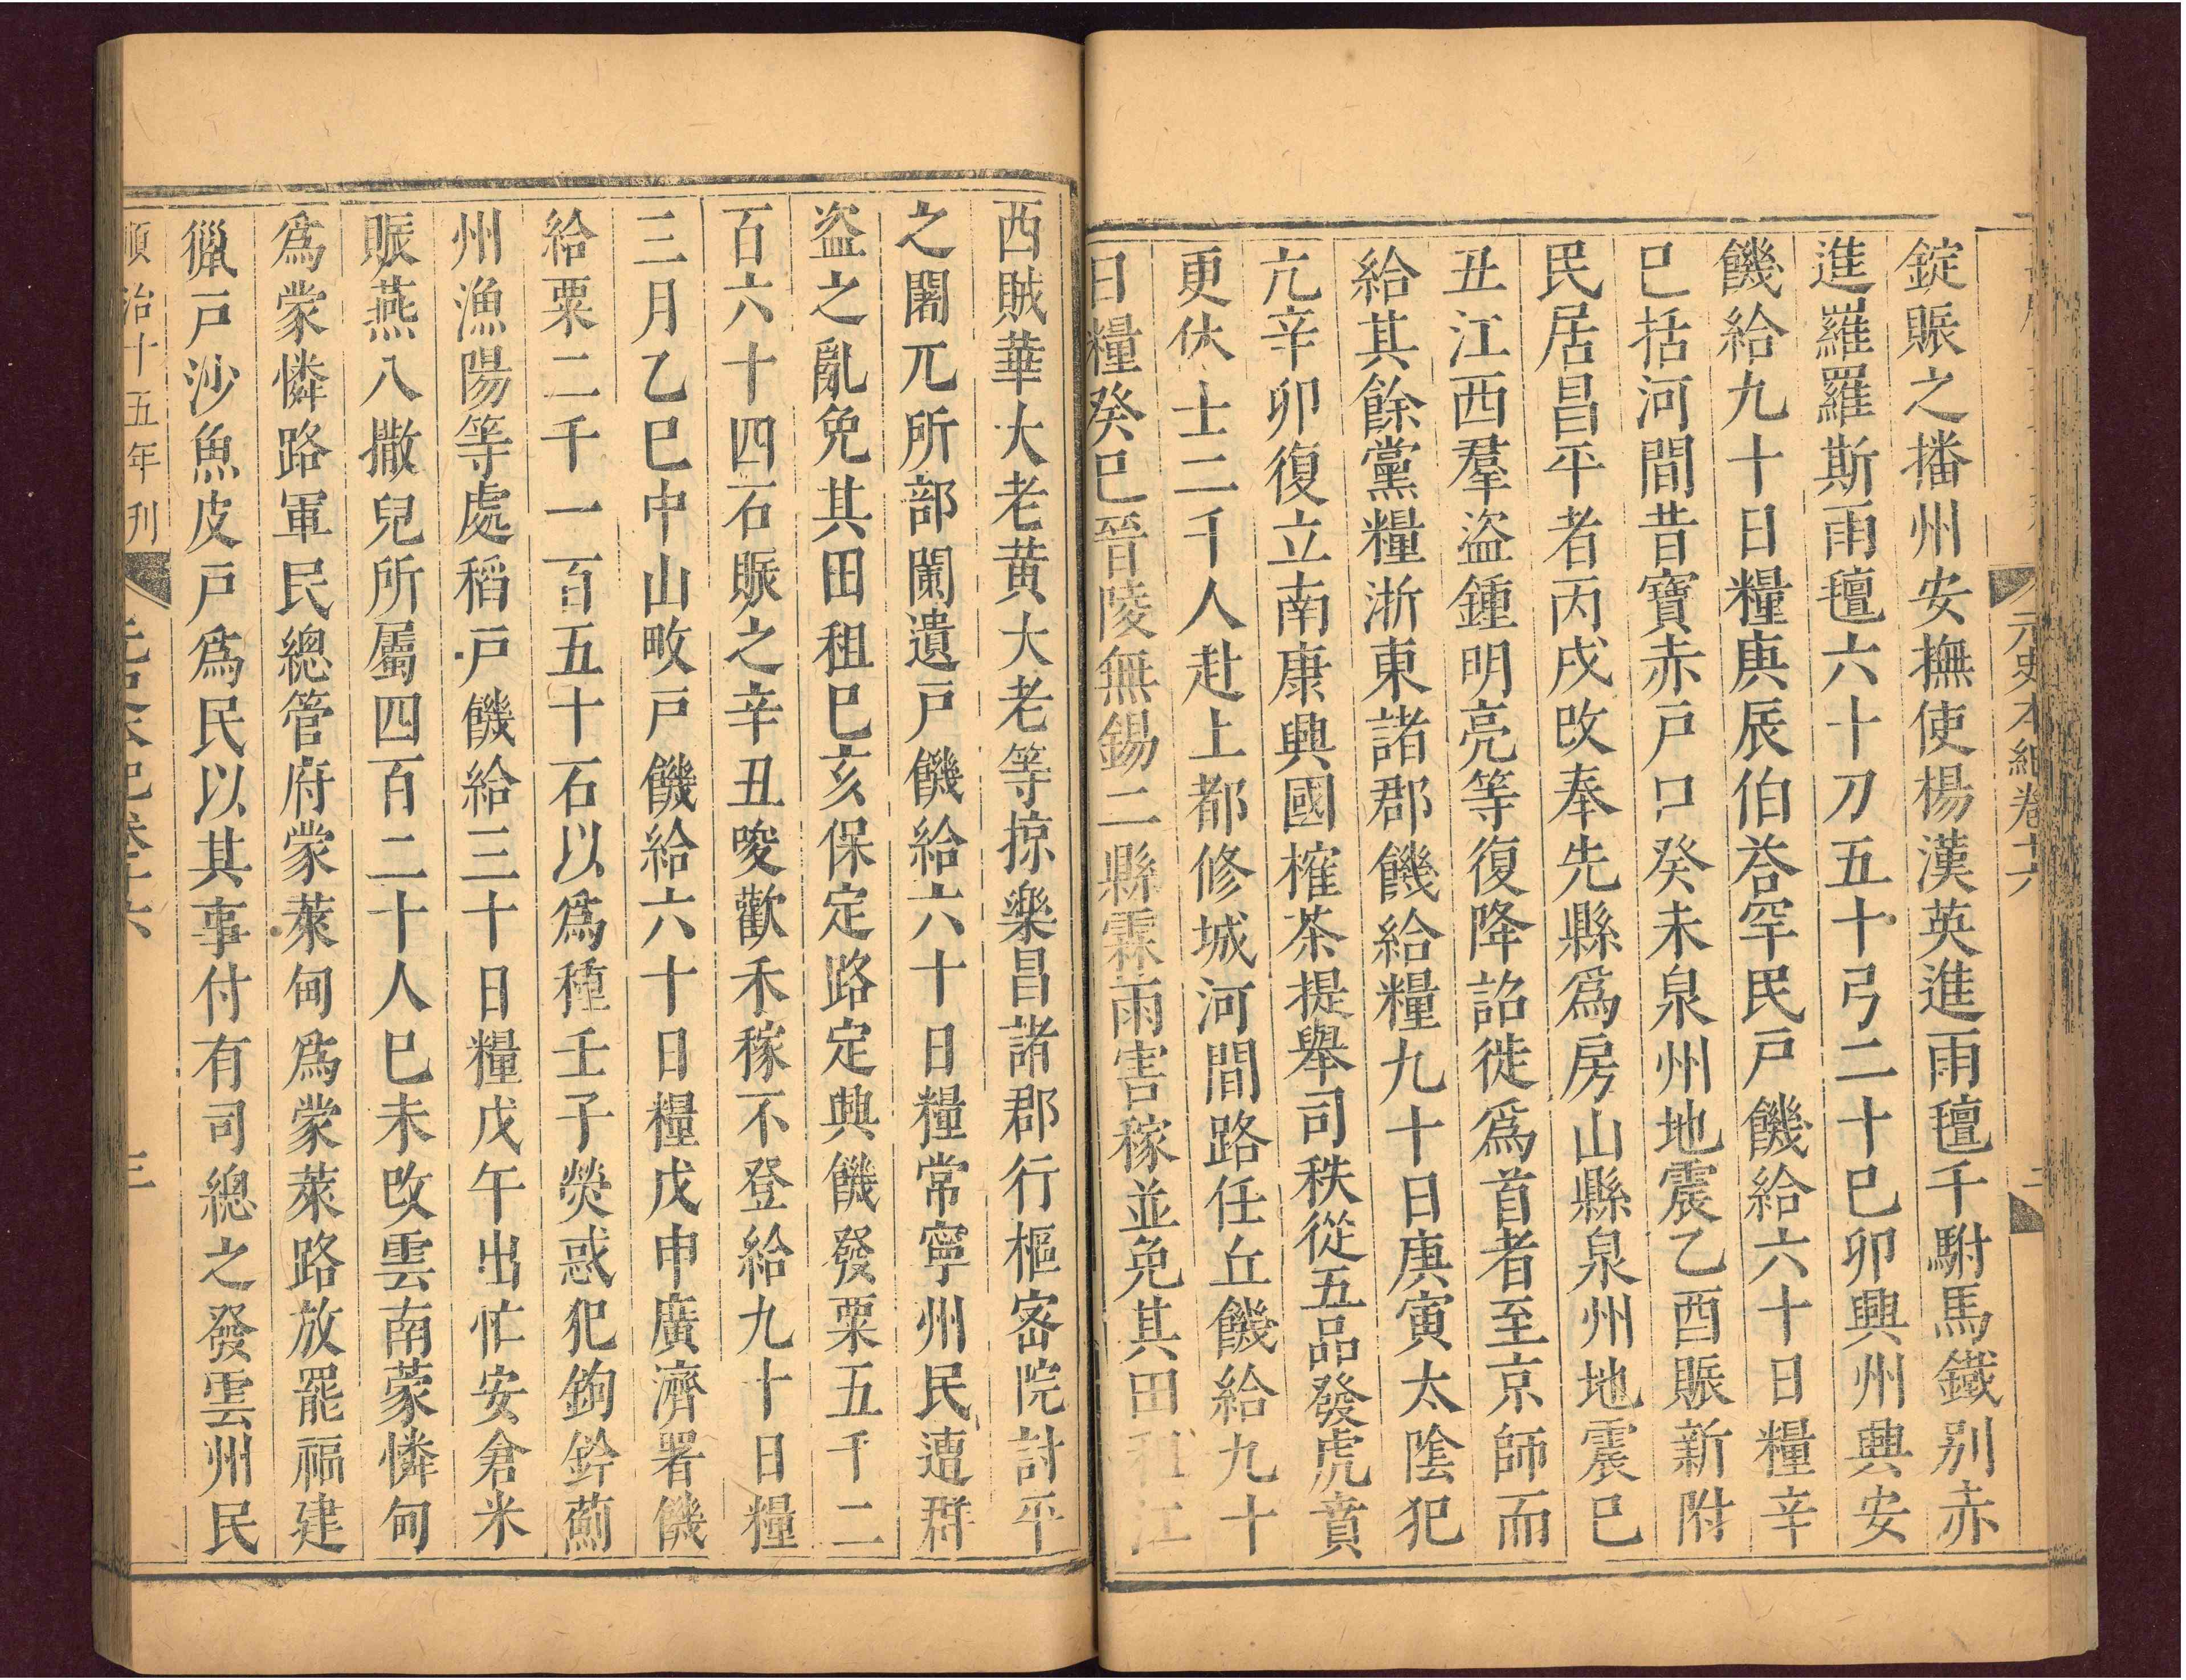 元史本紀卷十六
二
錠賑之播州安撫使楊漢英進雨氊千駙馬鐵別赤
進羅羅斯雨氊六十刀五十弓二十巳卯興州興安
饑給九十日糧庚辰伯荅罕民戶饑給六十日糧辛
巳括河間昔寶赤戶口癸未泉州地震乙酉賑新附
民居昌平者丙戌改奉先縣爲房山縣泉州地震巳
丑江西羣盜鍾明亮等復降詔徙爲首者至京師而
給其餘黨糧浙東諸郡饑給糧九十日庚寅太陰犯
亢辛卯復立南康興國榷茶提舉司秩從五品發虎賁
更休士二千人赴上都修城河間路任丘饑給九十
日糧癸巳晉陵無錫二縣霖雨害稼並免其田租江
西賊華大老黄大老等掠樂昌諸郡行樞密院討平
之闍兀所部闌遺戶饑給六十日糧常寧州民遭群
盜之亂免其田租巳亥保定路定興饑發粟五千二
百六十四石賑之辛丑唆歡禾稼不登給九十日糧
三月乙巳中山畋戶饑給六十日糧戊申廣濟署饑
給粟二千一百五十石以爲種壬子熒惑犯鉤鈐薊
州漁陽等處稻戶饑給三十日糧戊午出忙安倉米
賑燕八撒兒所屬四百二十人巳未改雲南蒙憐甸
爲蒙憐路軍民總管府蒙萊甸爲蒙萊路放罷福建
獵戶沙魚皮戶爲民以其事付有司總之發雲州民
順治十五年刊
三